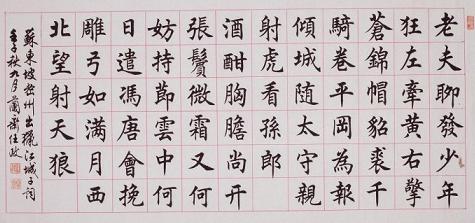 老夫聊發少年
狂左牽黃右擎
蒼錦帽貂裘千
騎卷平岡為報
傾城隨太守親
射虎看孫郎
酒酣胸膽尚開
張鬢微霜又何
妨持節雲中何
日遣馮唐會挽
雕弓如满月西
北望射天狼
蘇東坡密州出獵江城子詞
壬子秋九月蘭齋任政